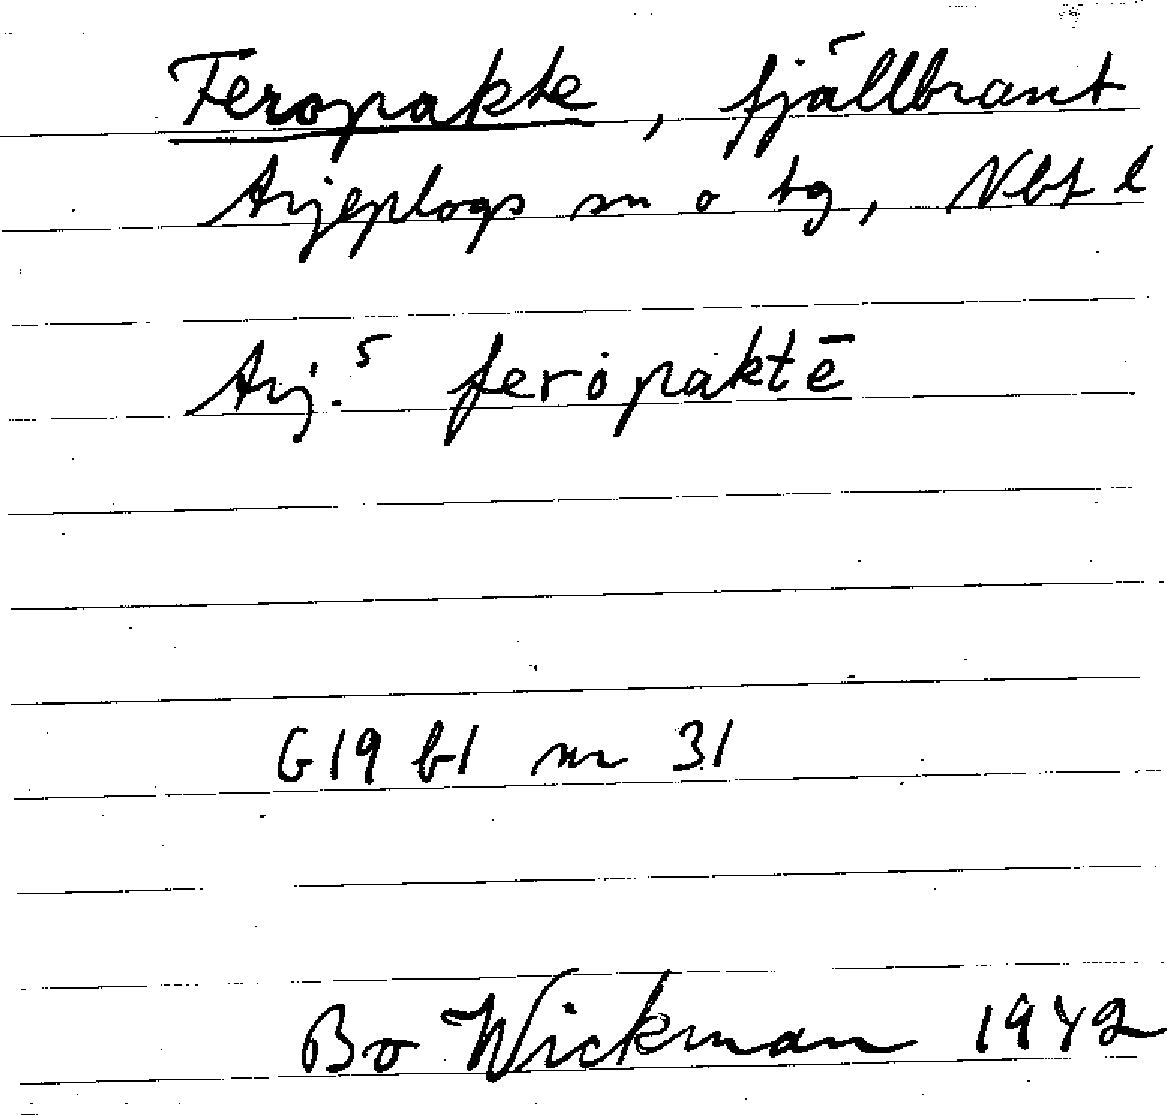 Feropakte, fjällbrant
Arjeplogs sn o tg, Nbt l
Arj.5 feropaktē
G19 b1 nr 31
Bo Wickman 1942